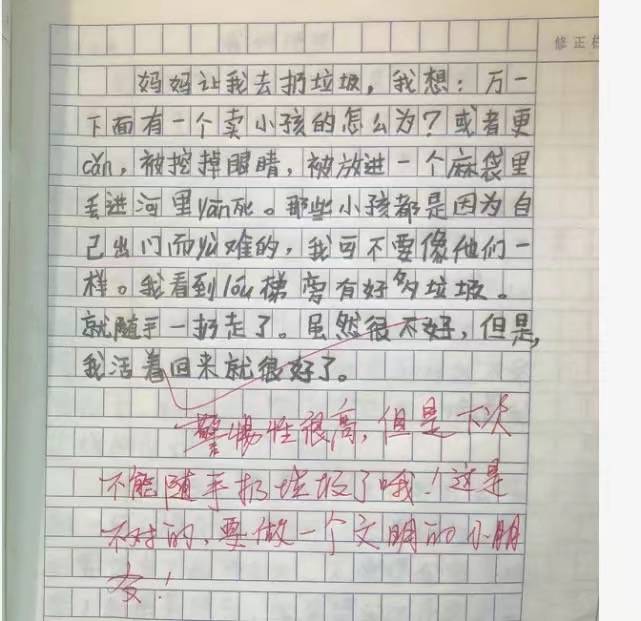 修正栏
妈妈让我去扔垃圾，我想：万一
下面有一个卖小孩的怎么为？或者更
cǎn，被挖掉眼睛，被放进一个麻袋里
丢进河里yān死。那些小孩都是因为自
己出门而yù难的，我可不要像他们一
样。我看到lóu梯旁有好多垃圾。
就随手一扔走了。虽然很不好，但是，
我活着回来就很好了。
警惕性很高，但是下次
不能随手扔垃圾了哦！这是
不对的，要做一个文明的小朋
友！